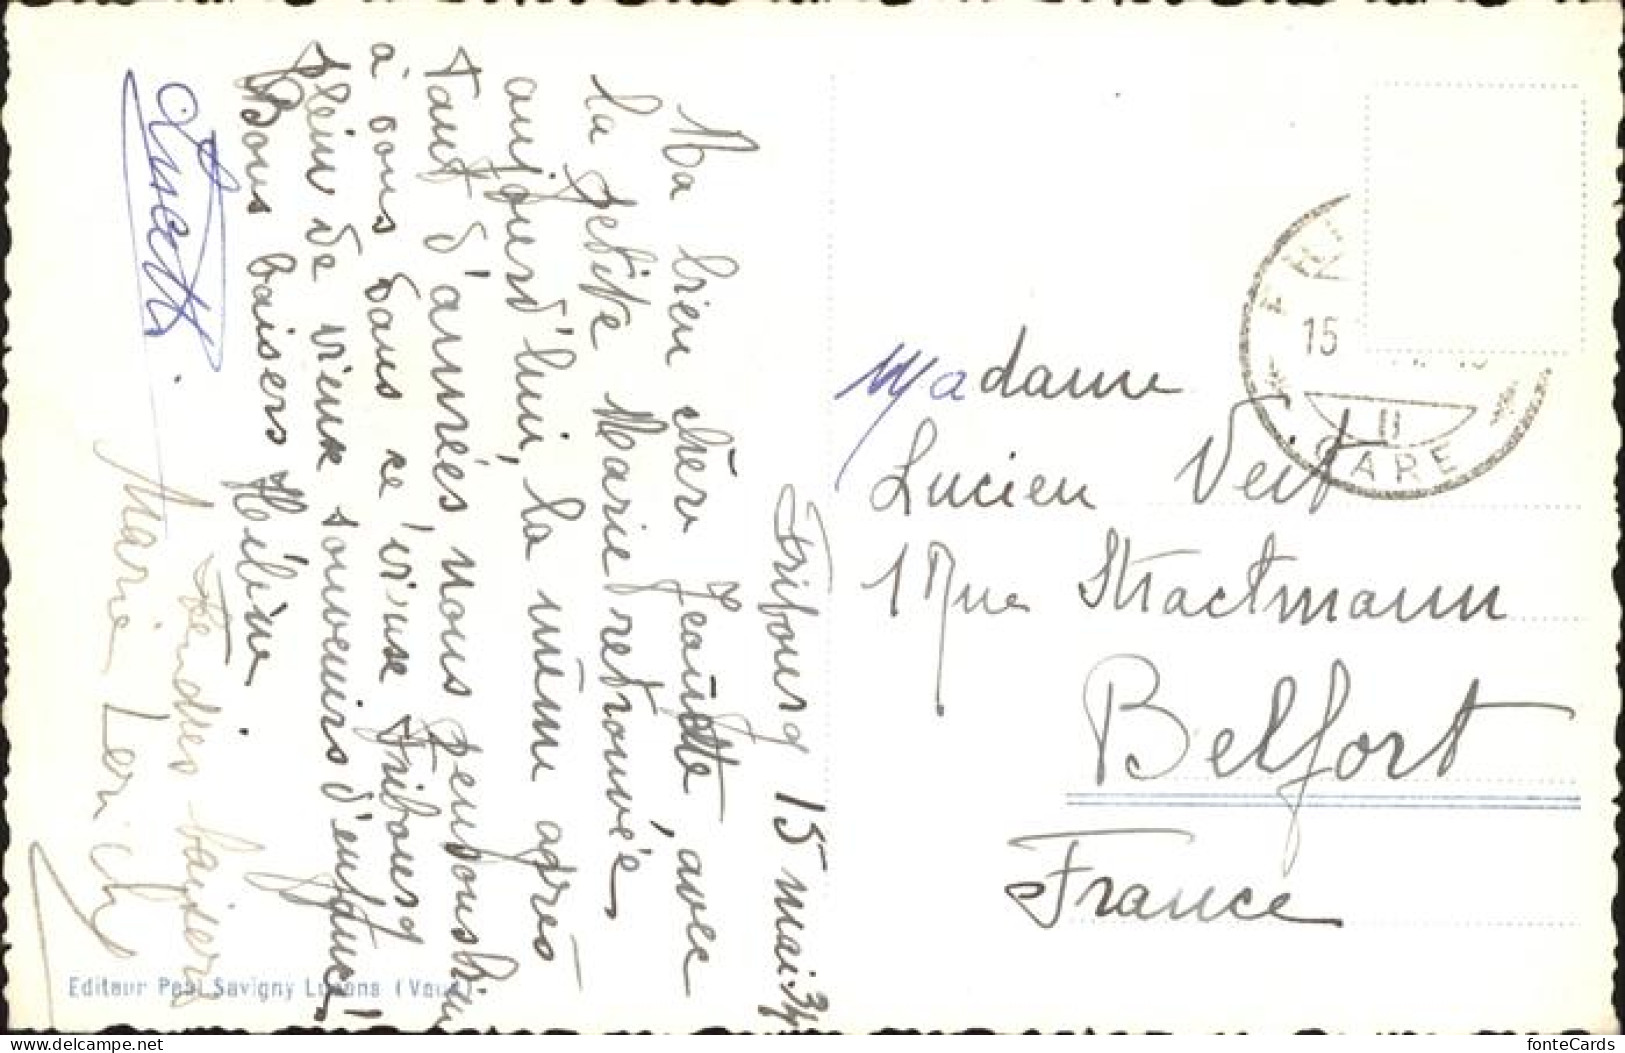 Fribourg 15 mai 34
Ma bien chère Jeannette, avec
la petite Marie retrouvée
aujourd'hui, la même après
tant d'années, nous pensons bien
à vous dans ce vieux Fribourg
plein de vieux souvenirs d'enfance!
Bons baisers Hélène.
tendres baisers
Marie
Madame
Lucien Veit
1 Rue Stractmann
Belfort
France
15
II
GARE
Editeur Paul Savigny
fonteCards